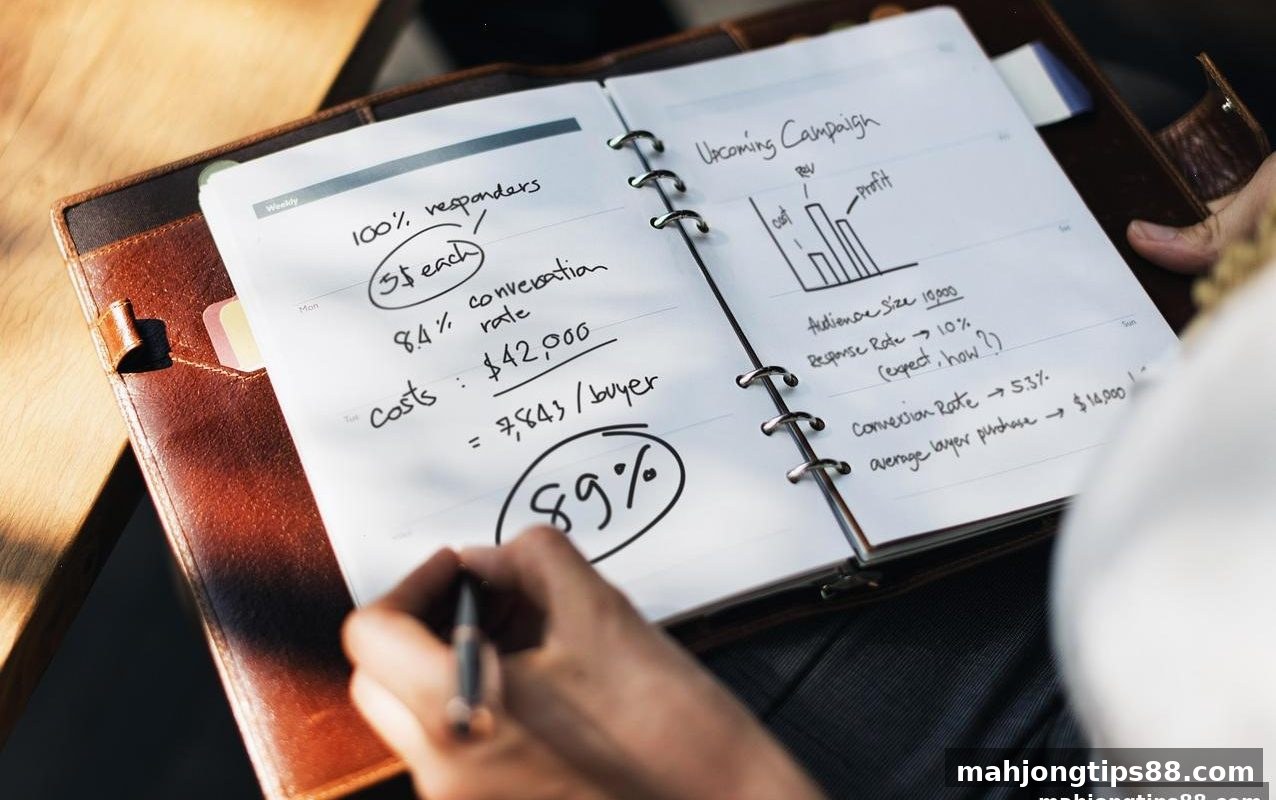 Weekly
100% responders
5$ each
8.4% conversation
rate
costs : $42,000
= 7,843 /buyer
89%
Mon
Tue
Upcoming Campaign
cost
Rev
profit
Audience Size 10,000
Response Rate → 10%
(expect, how?)
Conversion Rate → 5.3%
average buyer purchase → $14,000
Sun
mahjongtips88.com
mahjongtips88.com